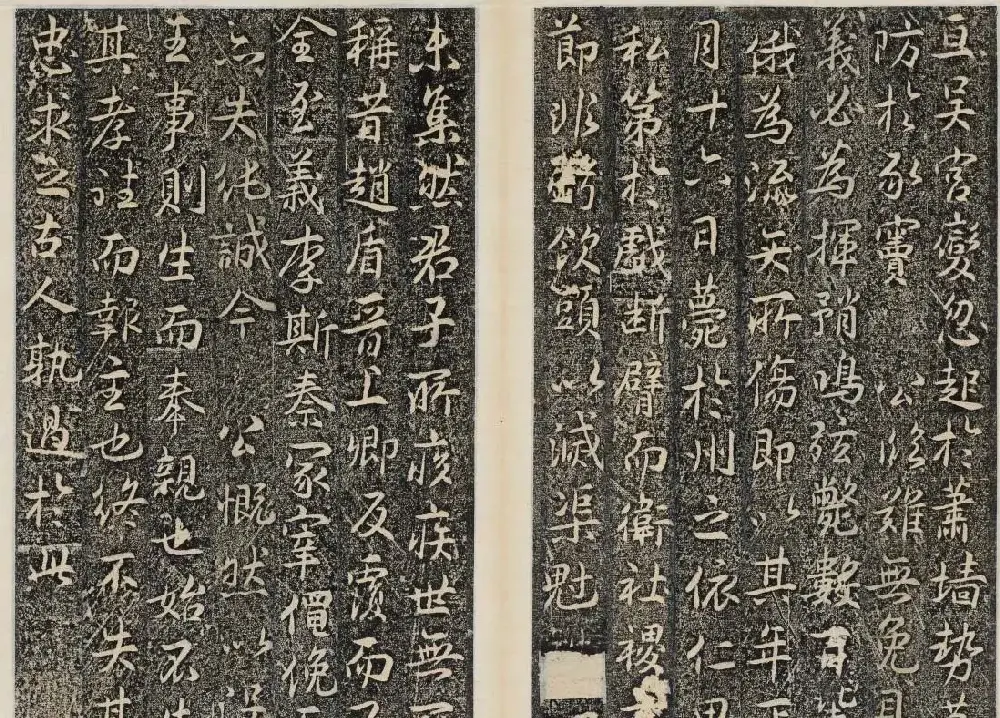 吴宫變忽起於蕭墻勢
防於豕竇 公臨難無免
義必為揮矟鳴弦斃數百
俄為流矢所傷即以其年
月十六日薨於州之依仁里
私第於戲断臂而衛社稷
節非虧飲頭以滅渠魁
未集然君子所疾世無
稱昔趙盾晉上卿反覆而
全至義李斯秦冢宰僶俛
失純誠今 公慨然以
主事則生而奉親也始
其孝往而報主也終不失其
忠求之古人孰過於此